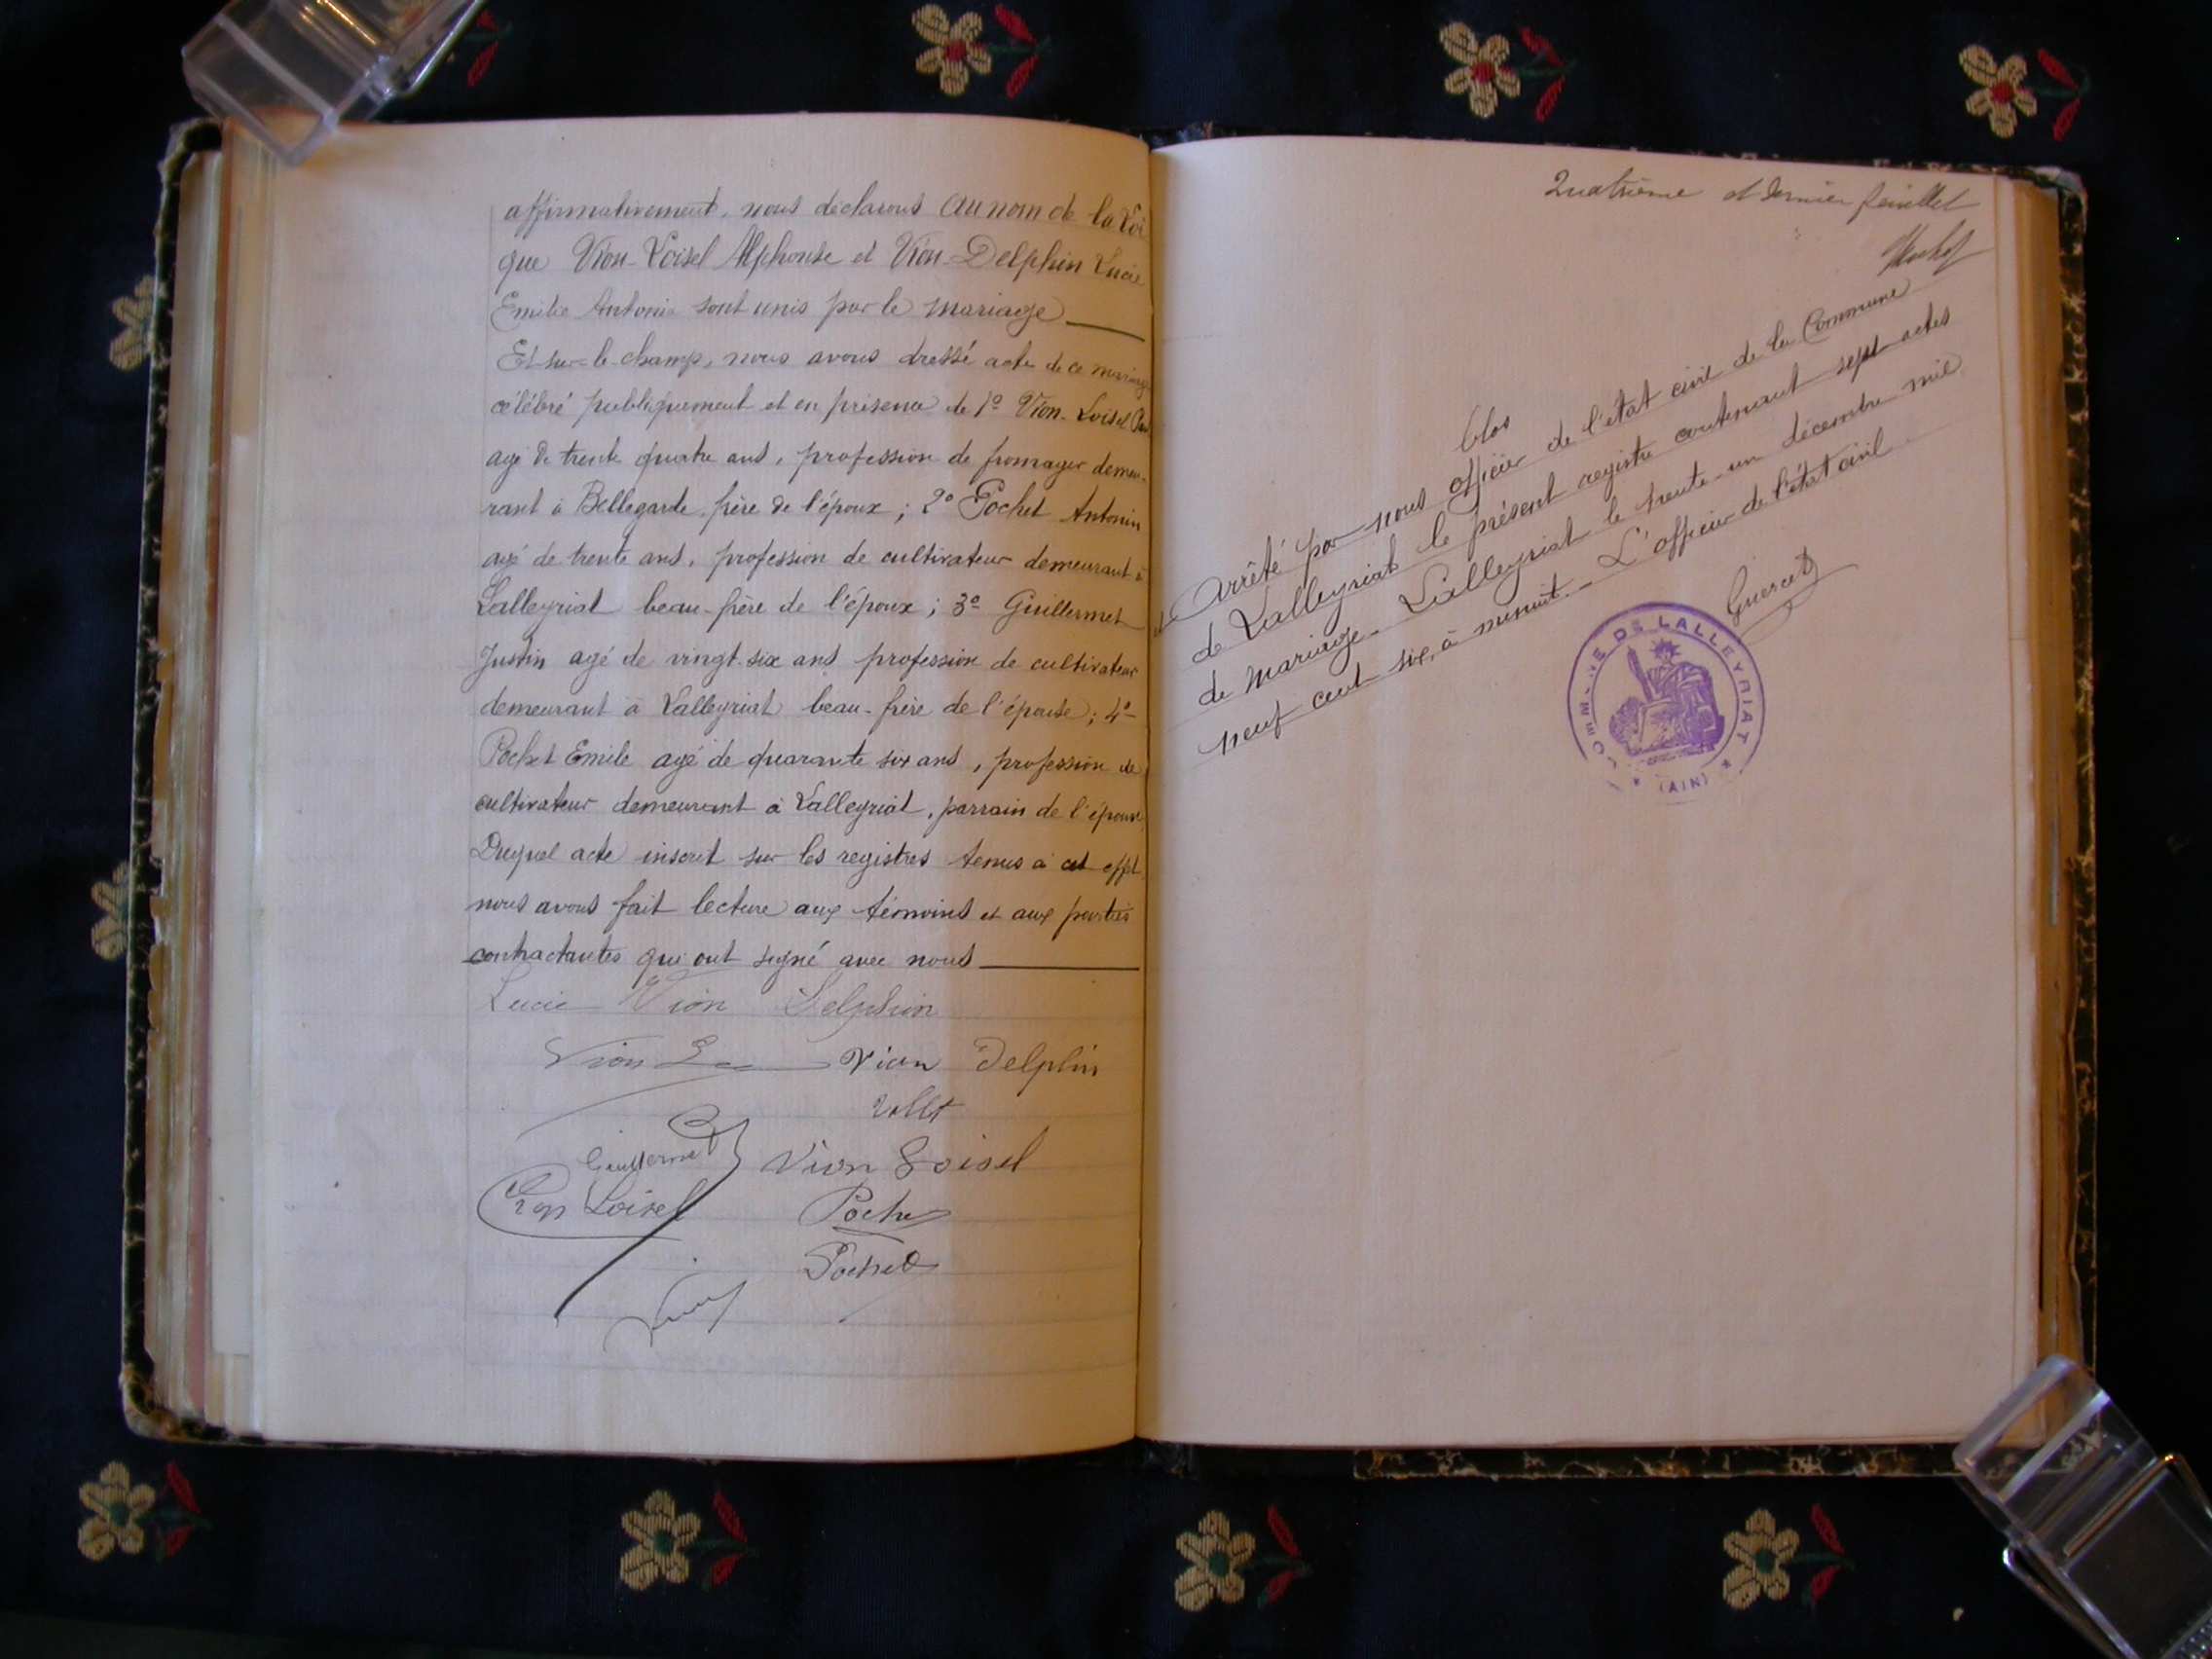 affirmativement, nous déclarons au nom de la Loi
que Vion-Loisel Alphonse et Vion-Delphin Lucie
Emilie Antonie sont unis par le mariage
Et sur-le-champ, nous avons dressé acte de ce mariage
célébré publiquement et en présence de 1º Vion-Loisel
agé de trente quatre ans, profession de fromager demeu-
rant à Bellegarde, frère de l'époux ; 2º Pochet Antonin
agé de trente ans, profession de cultivateur demeurant à
Lalleyriat beau-frère de l'époux ; 3º Guillermet
Justin agé de vingt-six ans profession de cultivateur
demeurant à Lalleyriat beau-frère de l'épouse ; 4º
Pochet Emile agé de quarante six ans, profession de
cultivateur demeurant à Lalleyriat, parrain de l'époux
Duquel acte inscrit sur les registres tenus à cet effet
nous avons fait lecture aux témoins et aux parties
contractantes qui ont signé avec nous
Lucie Vion Delphin
Vion Vion Delphin
Guillermet Vion Loisel
Loisel Poche
Pochet
Quatrième et dernier feuillet
Clos
et Arrêté par nous officier de l'état civil de la Commune
de Lalleyriat le présent registre contenant sept actes
de mariage - Lalleyriat le trente-un décembre mil
neuf cent six, à minuit. - L'officier de l'état civil
Guercet
COMMUNE DE LALLEYRIAT
* (AIN) *